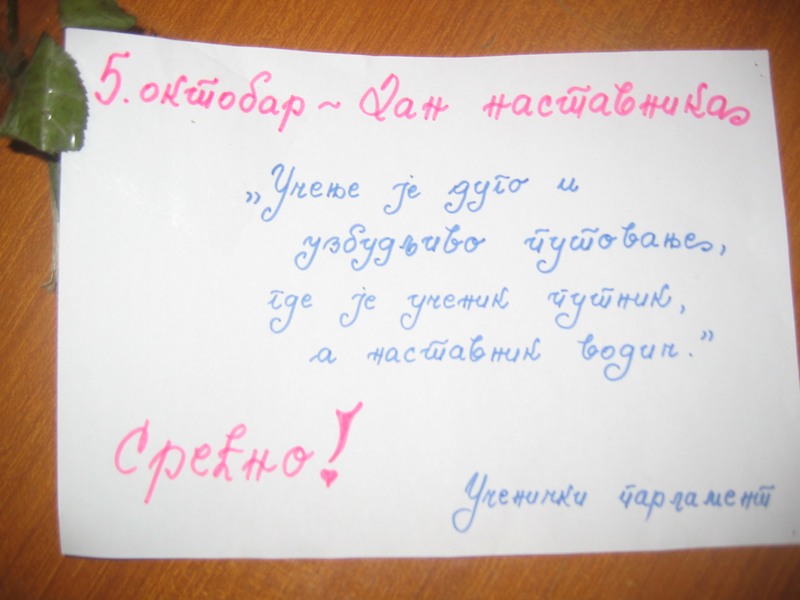 5. октобар ~ Дан наставника
„Учење је дуго и
узбудљиво путовање,
где је ученик путник,
а наставник водич.”
Срећно!
Ученички парламент